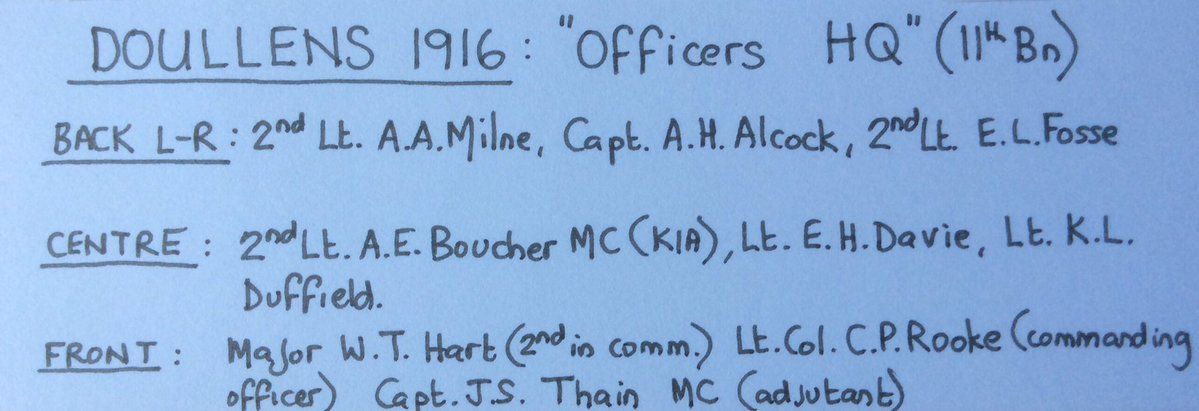 DOULLENS 1916: "Officers HQ" (11th Bn)
BACK L-R: 2nd Lt. A.A.Milne, Capt. A.H. Alcock, 2nd Lt. E.L.Fosse
CENTRE: 2nd Lt. A.E. Boucher MC (KIA), Lt. E.H.Davie, Lt. K.L.
Duffield.
FRONT: Major W.T. Hart (2nd in comm.) Lt.Col. C.P.Rooke (commanding
officer) Capt. J.S. Thain MC (adjutant)